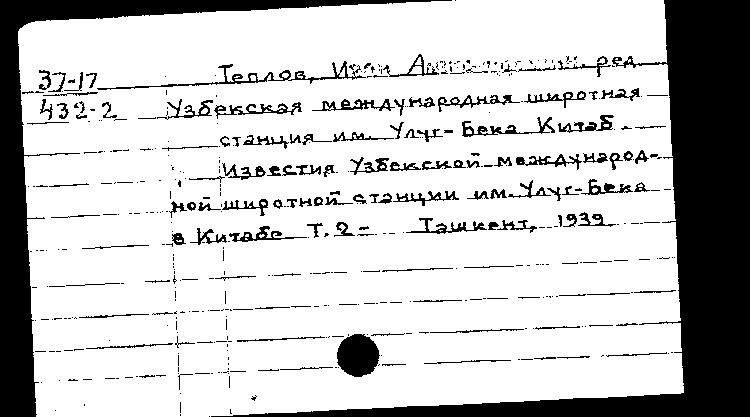 37-17 Теплов, Иван ред.
432-2 Узбекская международная широтная
станция им. Улуг-Бека Китаб.
Известия Узбекской международ-
ной широтной станции им. Улуг-Бека
в Китабе Т. 2 - Ташкент, 1939